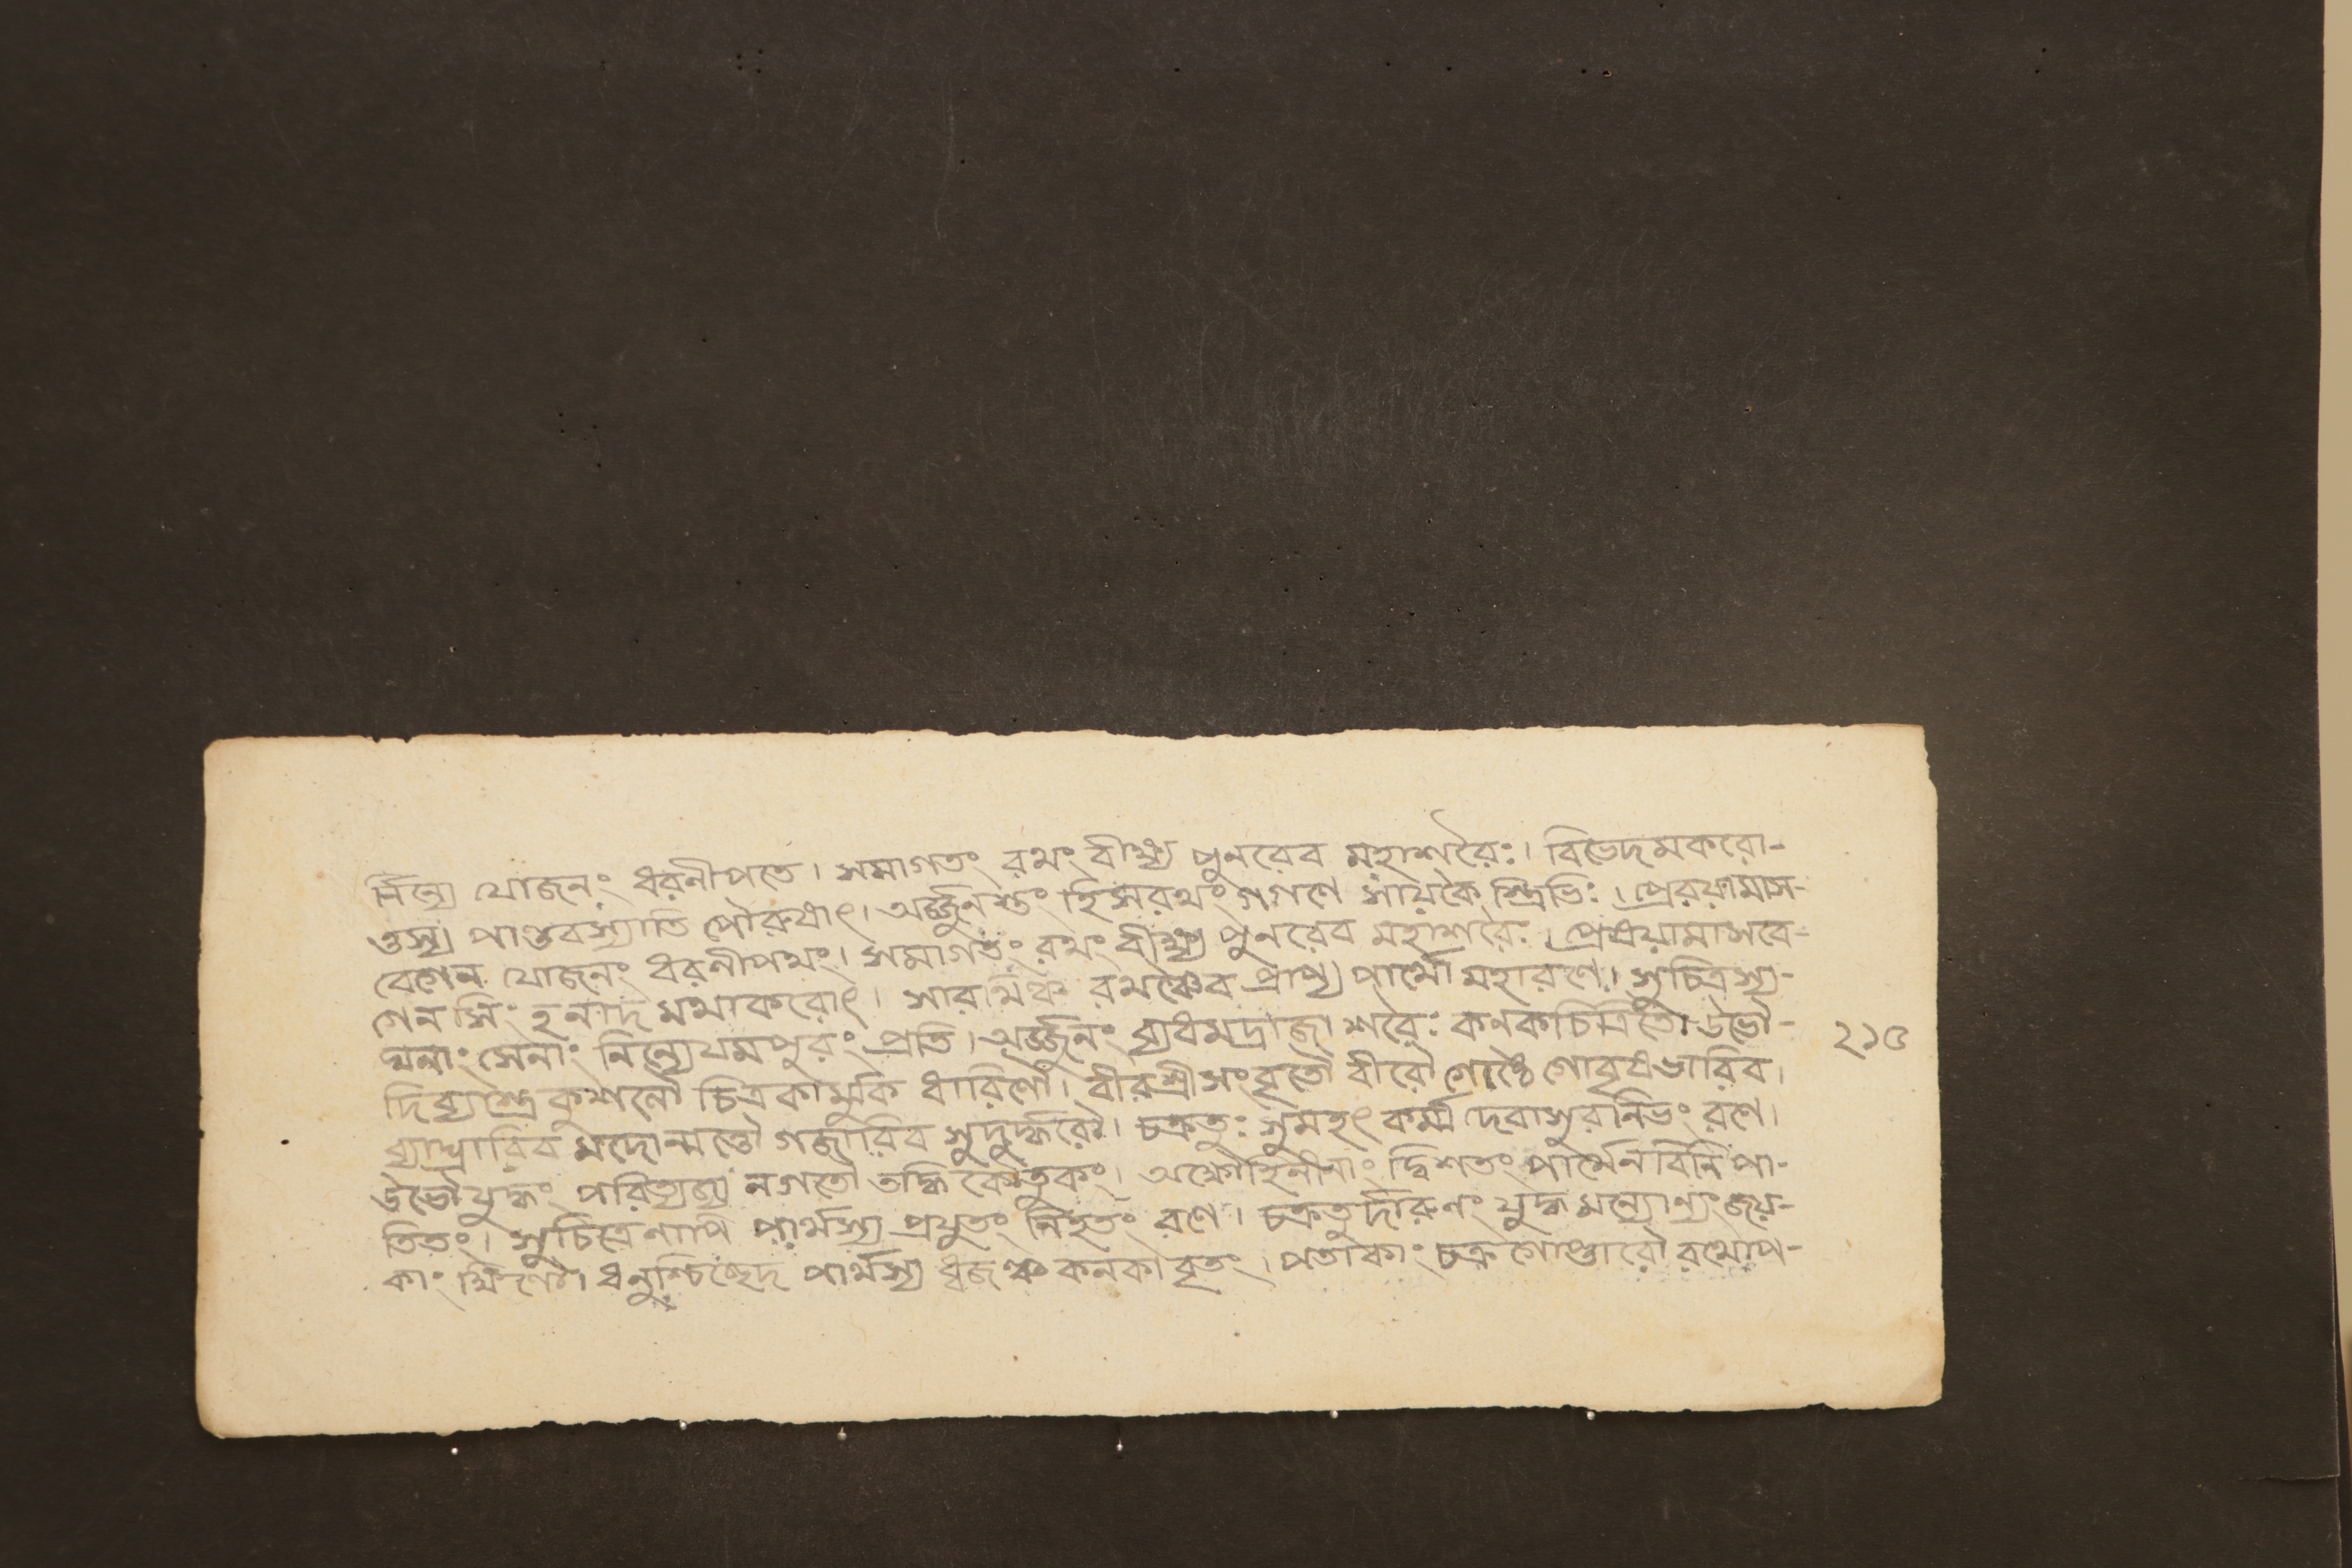 র্নিন্যে যোজনং ধরনীপতে। সমাগতং রথং বীক্ষ্য পুনরেব মহাশরৈঃ। বিভেদমকরো-
ত্তস্য পাণ্ডবস্যাতি পৌরুষাৎ। অর্জ্জুনস্তং হিসরথং গগণে সায়কৈ স্ত্রিভিঃ। প্রেরয়ামাস-
বেগেন যোজনং ধরনীপথং। সমাগতং রথং বীক্ষ্য পুনরেব মহাশরৈঃ। প্রেষয়ামাসবে-
গেন সিংহনাদ মথাকরোৎ। সারথিঞ্চ রথঞ্চৈব প্রাপ্য পার্থো মহারণে। সুচিত্রস্য-
ঘনাং সেনাং নিন্যেযমপুরং প্রতি। অর্জ্জুনং ব্যধমদ্রাজা শরৈঃ কনকচিত্রিতৈ। উভৌ-
দিব্যাস্ত্র কুশলৌ চিত্রকার্মুক ধারিণৌ। বীরশ্রীসংবৃতৌ বীরৌ গোষ্ঠে গোবৃষভাবিব।
ব্যাঘ্রাবিব মদোন্মত্তৌ গজাবিব সুদুর্দ্ধরৌ। চক্রতুঃ সুমহৎ কর্ম্ম দেবাসুরনিভং রণে।
উভৌযুদ্ধং পরিত্যজ্য নগতৌ তদ্ধি কৌতুকং। অক্ষৌহিনীনাং দ্বিশতং পার্থেনবিনিপা-
তিতং। সুচিত্রেণাপি পার্থস্য প্রযুতং নিহতং রণে। চক্রতুর্দারুণং যুদ্ধমন্যোন্যংজয়-
কাংক্ষিণৌ। ধনুশ্চিচ্ছেদ পার্থস্য ধ্বজঞ্চ কনকাবৃতং। পতাকাং চক্রগোপ্তারৌ রথোপ-
২১৫